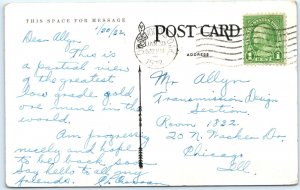 THIS SPACE FOR MESSAGE
POST CARD
ADDRESS
1/20/32
Dear Allyn:
This is
a partial view
of the greatest
low grade gold
ore mine in the
world.
Am progressing
nicely and hope
to be back soon
Say hello to all my
friends.
Mr Allyn
Transmission Design
Section
Room 1822
20 N. Wacker Dr.
Chicago
Ill.
1 CENT 1